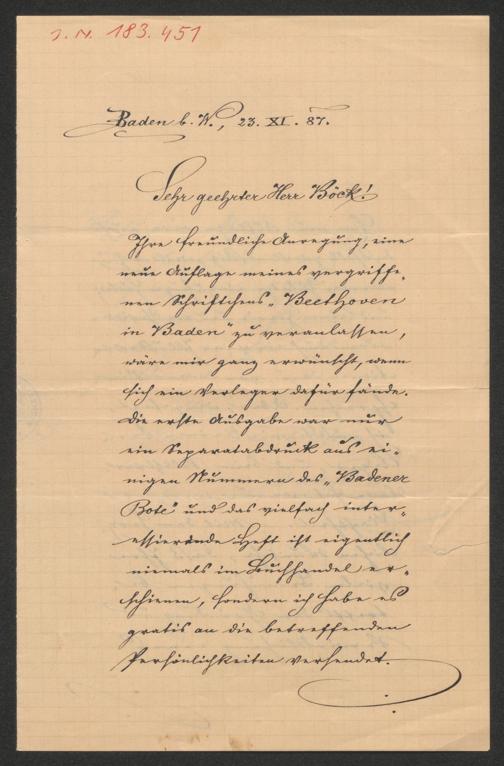 J. N. 183.451
Baden b. W., 23. XI. 87.
Sehr geehrter Herr Böck!
Ihre freundliche Anregung, eine
neue Auflage meines vergriffe„
nen Schriftchens „Beethoven
in Baden“ zu veranlassen,
wäre mir ganz erwünscht, wenn
sich ein Verleger dafür fände.
Die erste Ausgabe war nur
ein Separatabdruck aus ei„
nigen Nummern des „Badener
Bote“ und das vielfach inter„
essierende Heft ist eigentlich
niemals im Buchhandel er„
schienen, sondern ich habe es
gratis an die betreffenden
Persönlichkeiten versendet.